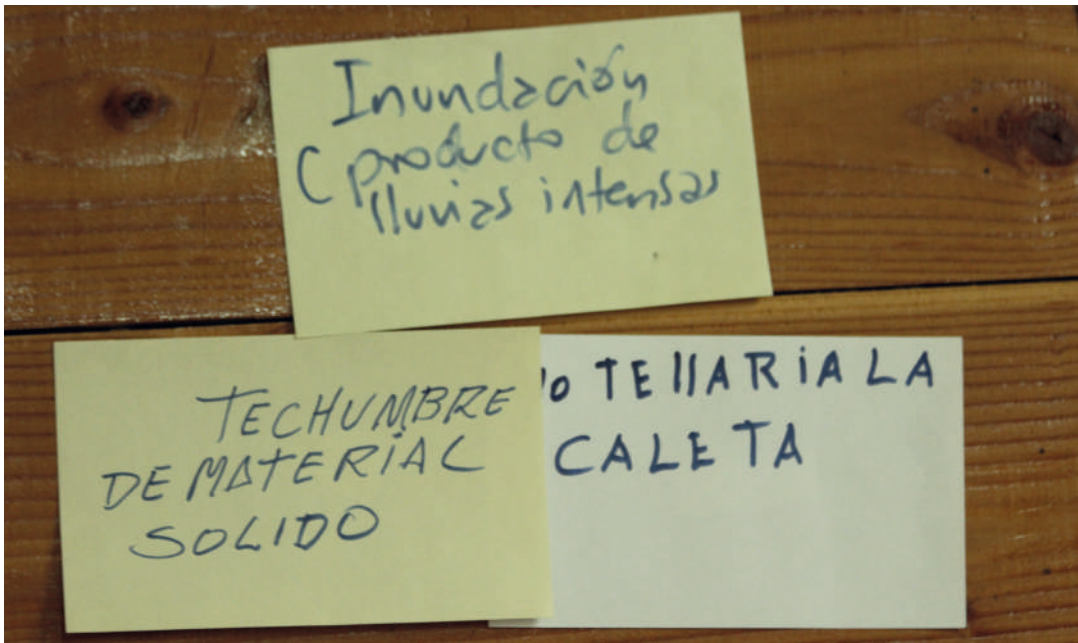 Inundación
C producto de
lluvias intensas
TECHUMBRE
DE MATERIAL
SOLIDO
TEllARiA LA
CALETA